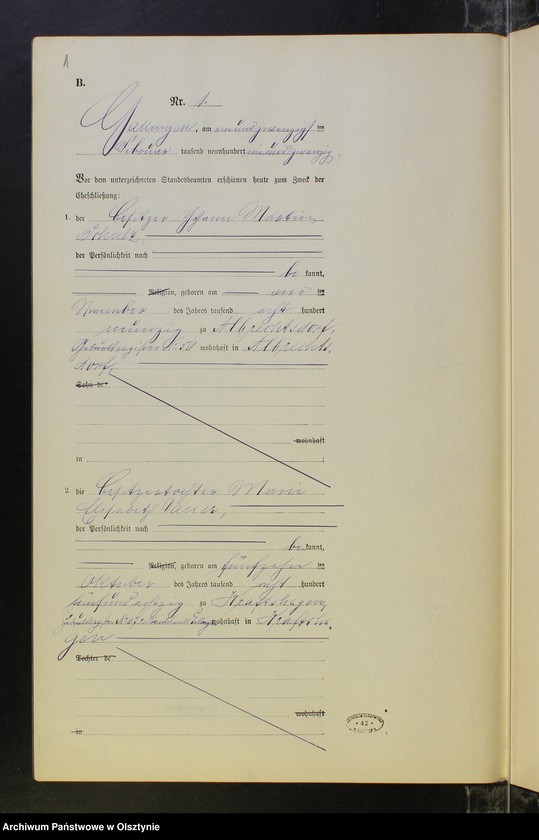 1
B.
Nr. 1.
Gallingen, am einundzwanzigsten
Februar tausend neunhundert einundzwanzig.
Vor dem unterzeichneten Standesbeamten erschienen heute zum Zweck der
Eheschließung:
1. der Besitzer Johann Martin
der Persönlichkeit nach
be kannt,
Religion, geboren am
November des Jahres tausend acht hundert
neunzig zu Albrechtsdorf,
Geburtsregister wohnhaft in Albrechts-
dorf,
Sohn de
wohnhaft
in ;
2. die Besitzertochter Marie
Elisabeth
der Persönlichkeit nach
be kannt,
Religion, geboren am fünfzehn ten
Oktober des Jahres tausend acht hundert
fünfundachtzig zu Kraftshagen,
wohnhaft in Kraftsha-
gen
Tochter de
wohnhaft
in
42
Archiwum Państwowe w Olsztynie